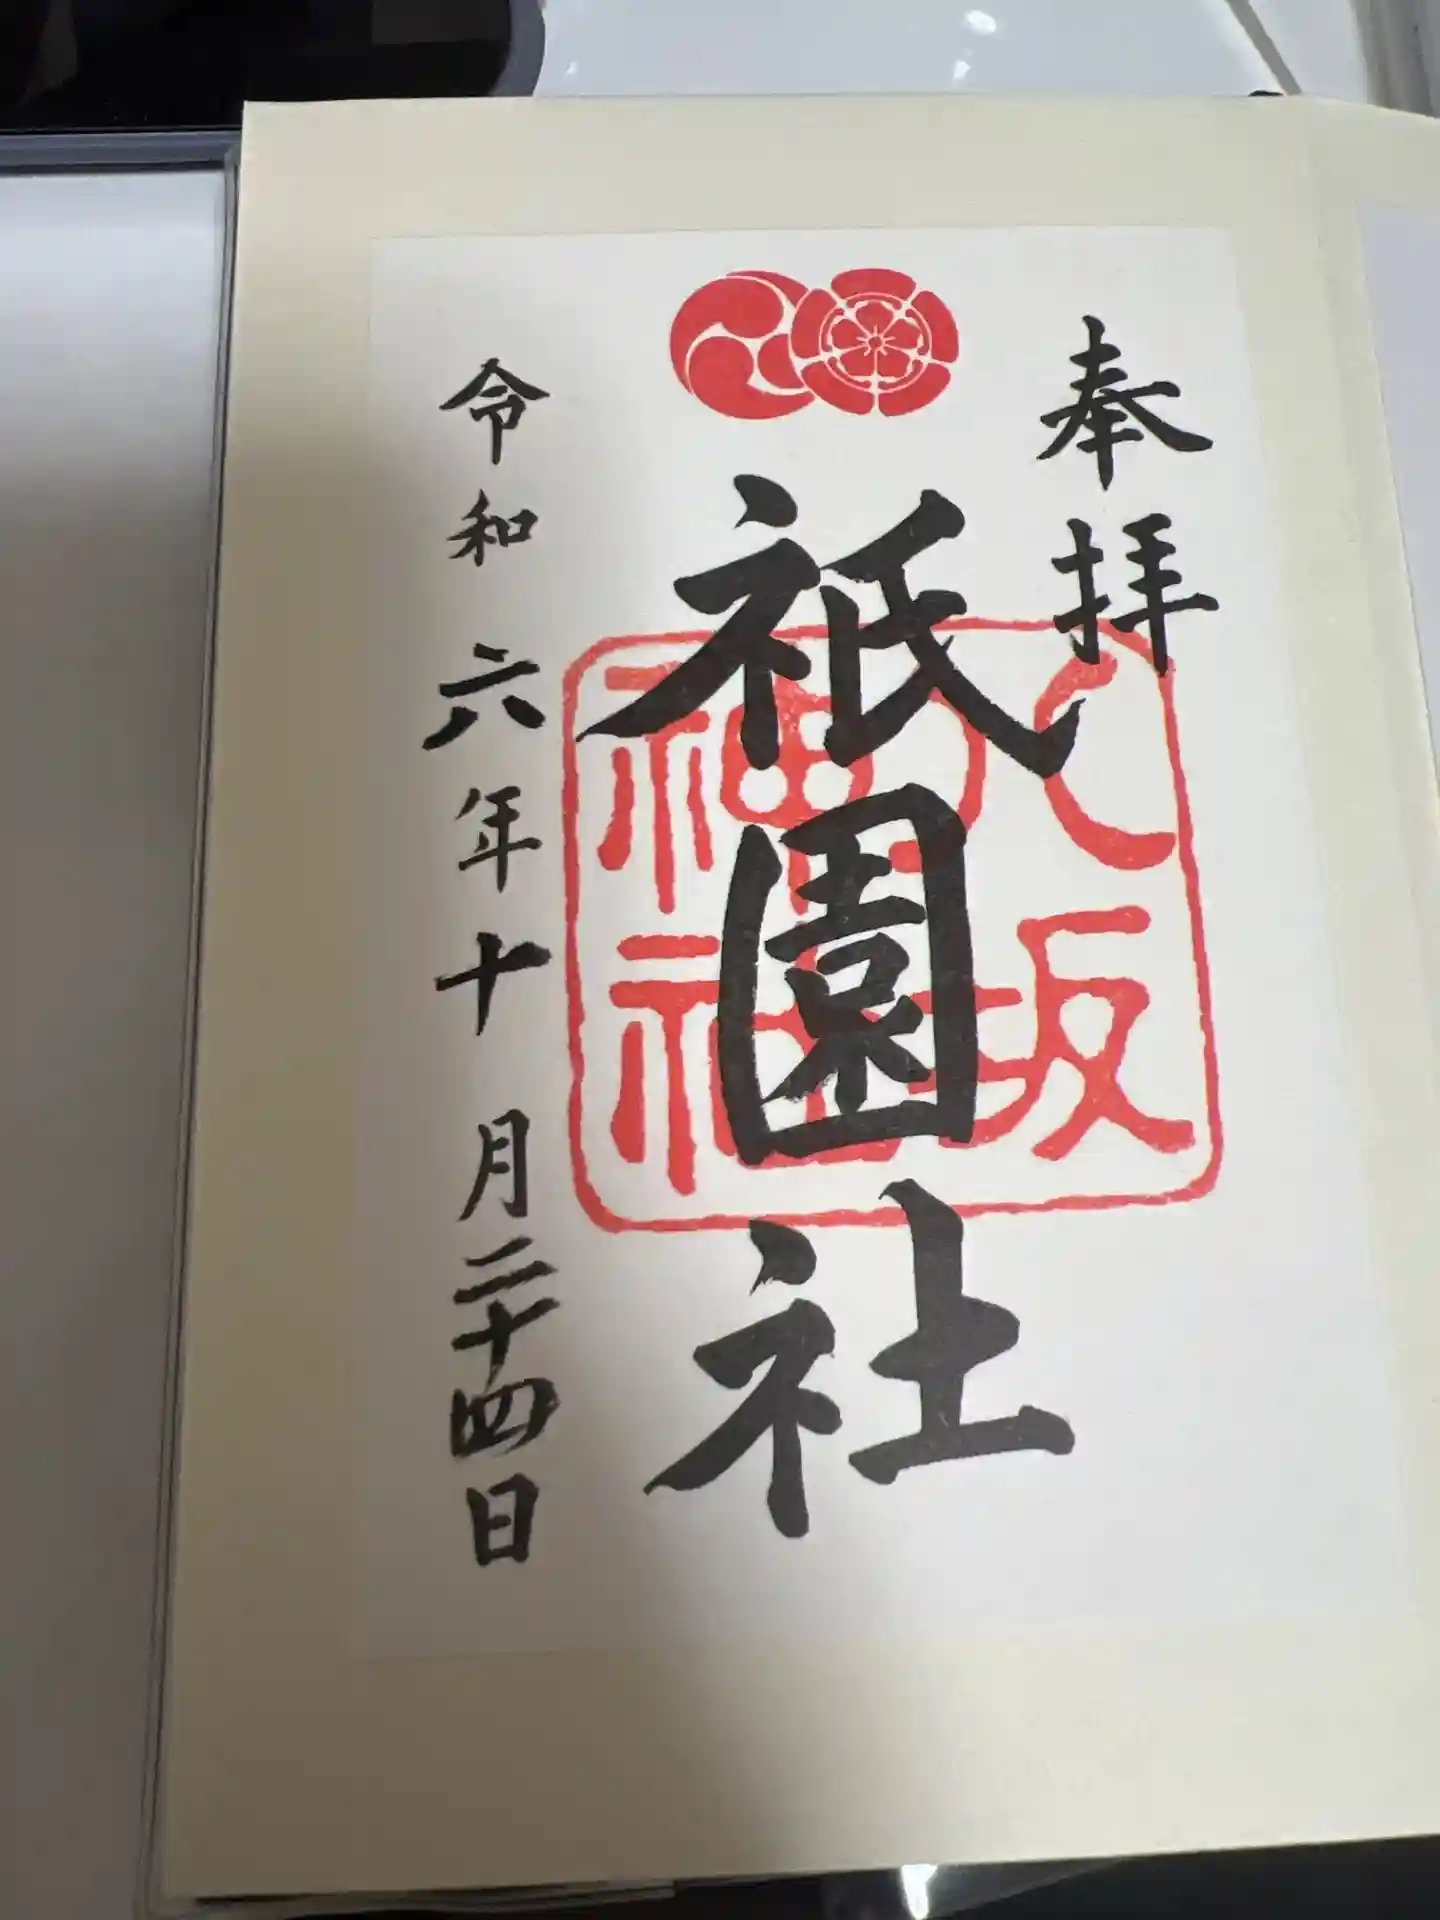 奉拝
祇園社
八坂神社
令和六年十月二十四日